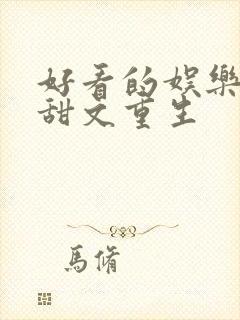 好看的娱樂
甜文重生
馬脩